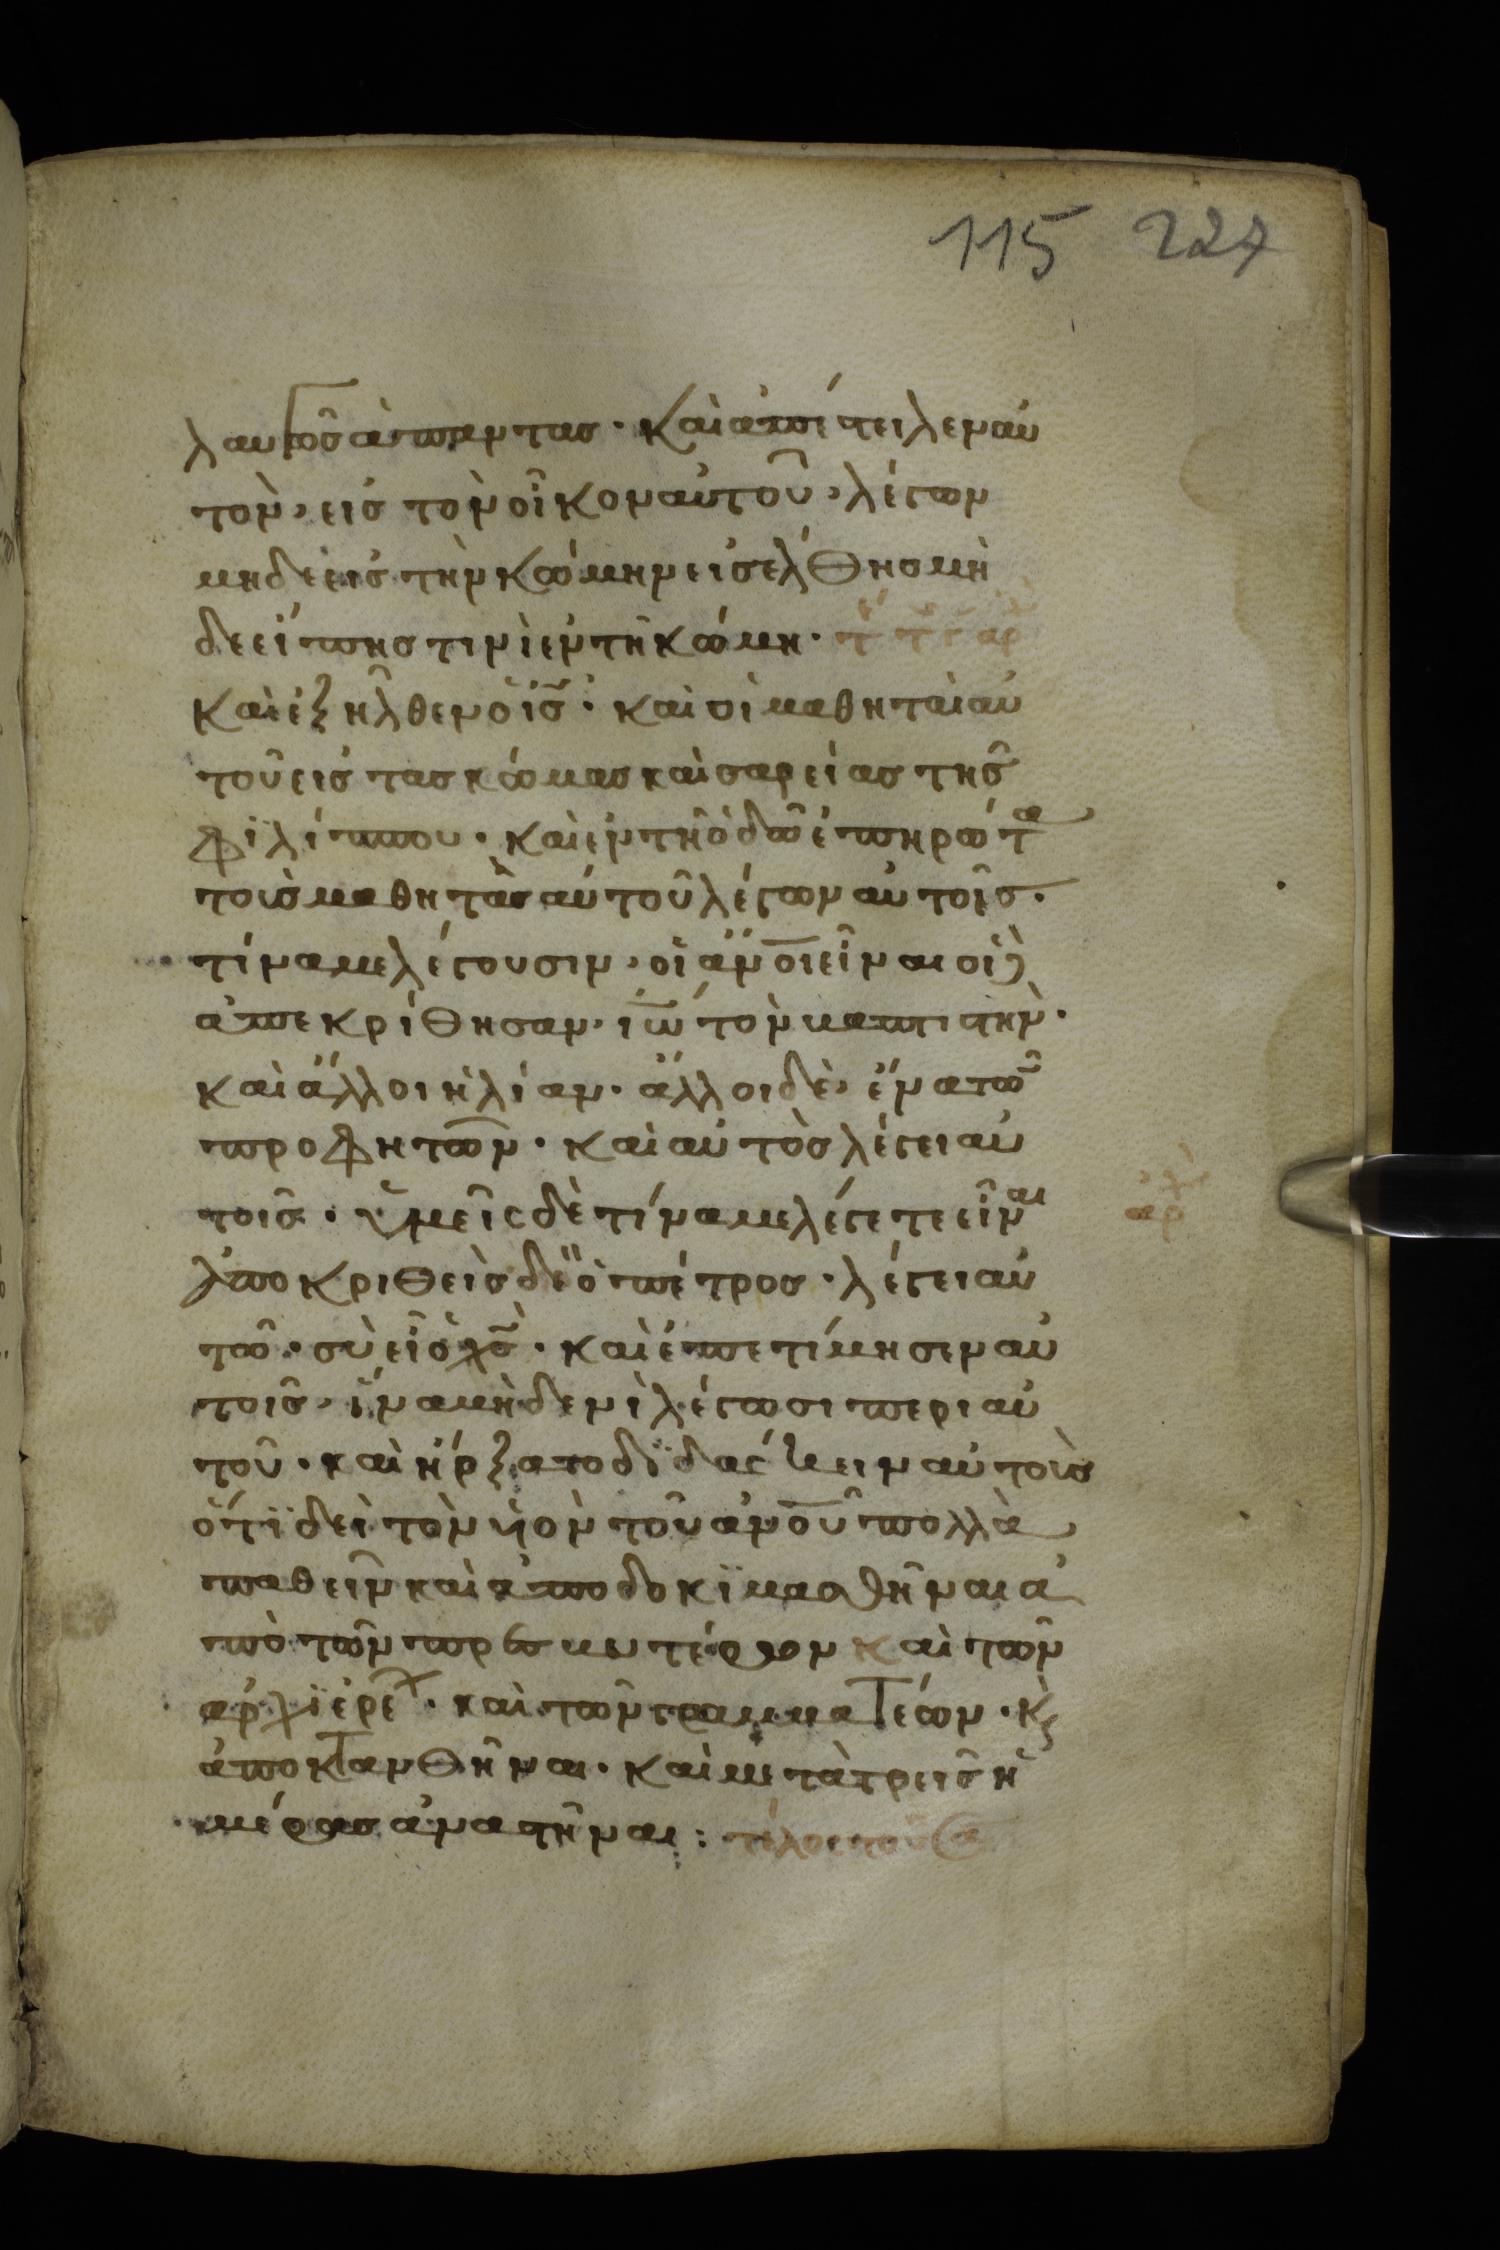 115 227
λαυγῶσ ἅπαντασ · Καὶ ἀπέστειλεν αὐ
τὸν, εἰσ τὸν οἶκον αὐτοῦ, λέγων
μηδὲ εἰσ τὴν κώμην εἰσέλθησ μὴ
δε εἴπησ τινὶ ἐν τῆ κώμη ·
Καὶ ἐξῆλθεν ὁ ἰσ̃ · καὶ οἱ μαθηταὶ αὐ
τοῦ εἰσ τασ κώμασ καισαρείασ τησ̃
Φϊλίππου · καὶ ἐν τῆ ὁδῶ ἐπηρώτα
τοὺσ μαθητὰσ αὐτοῦ λέγων αὐτοῖσ ·
τίνα με λέγουσιν, οἱ ἄν̅ο̅ι̅ εἶναι οἱ
ἀπεκρίθησαν, ἰω̅ τὸν βαπτιστὴν ·
καὶ ἄλλοι ἠλίαν · ἄλλοι δὲ, ἕνα τῶ
προφητῶν · καὶ αὐτὸσ λέγει αὐ
τοισ̃ · ὑμεῖς δὲ τίνα με λέγετε εἶναι
Ἀποκριθεὶσ δὲ ὁ πέτροσ · λέγει αὐ
τῶ · σὺ εἶ ὁ χσ̃ · καὶ ἐπετίμησεν αὐ
τοισ̃, ἵνα μὴδενὶ λέγωσι περι αὐ
τοῦ · καὶ ἤρξατο δϊδάσκειν αὐτοὺσ
ὅτϊ δεὶ τὸν υἱὸν τοῦ ἀν̅ο̅υ̅ πολλὰ
παθεῖν καὶ ἀποδοκϊμασθῆναι ἀ
πὸ τῶν πρεσβυτέρων καὶ τῶν
ἀρχϊερέ · καὶ τῶν γραμματέων · κ̀
ἀποκτανθῆναι · καὶ μετὰ τρεισ̃ ἡ
μέρασ ἀναστῆναι : τέλος του σα
ἀρχ